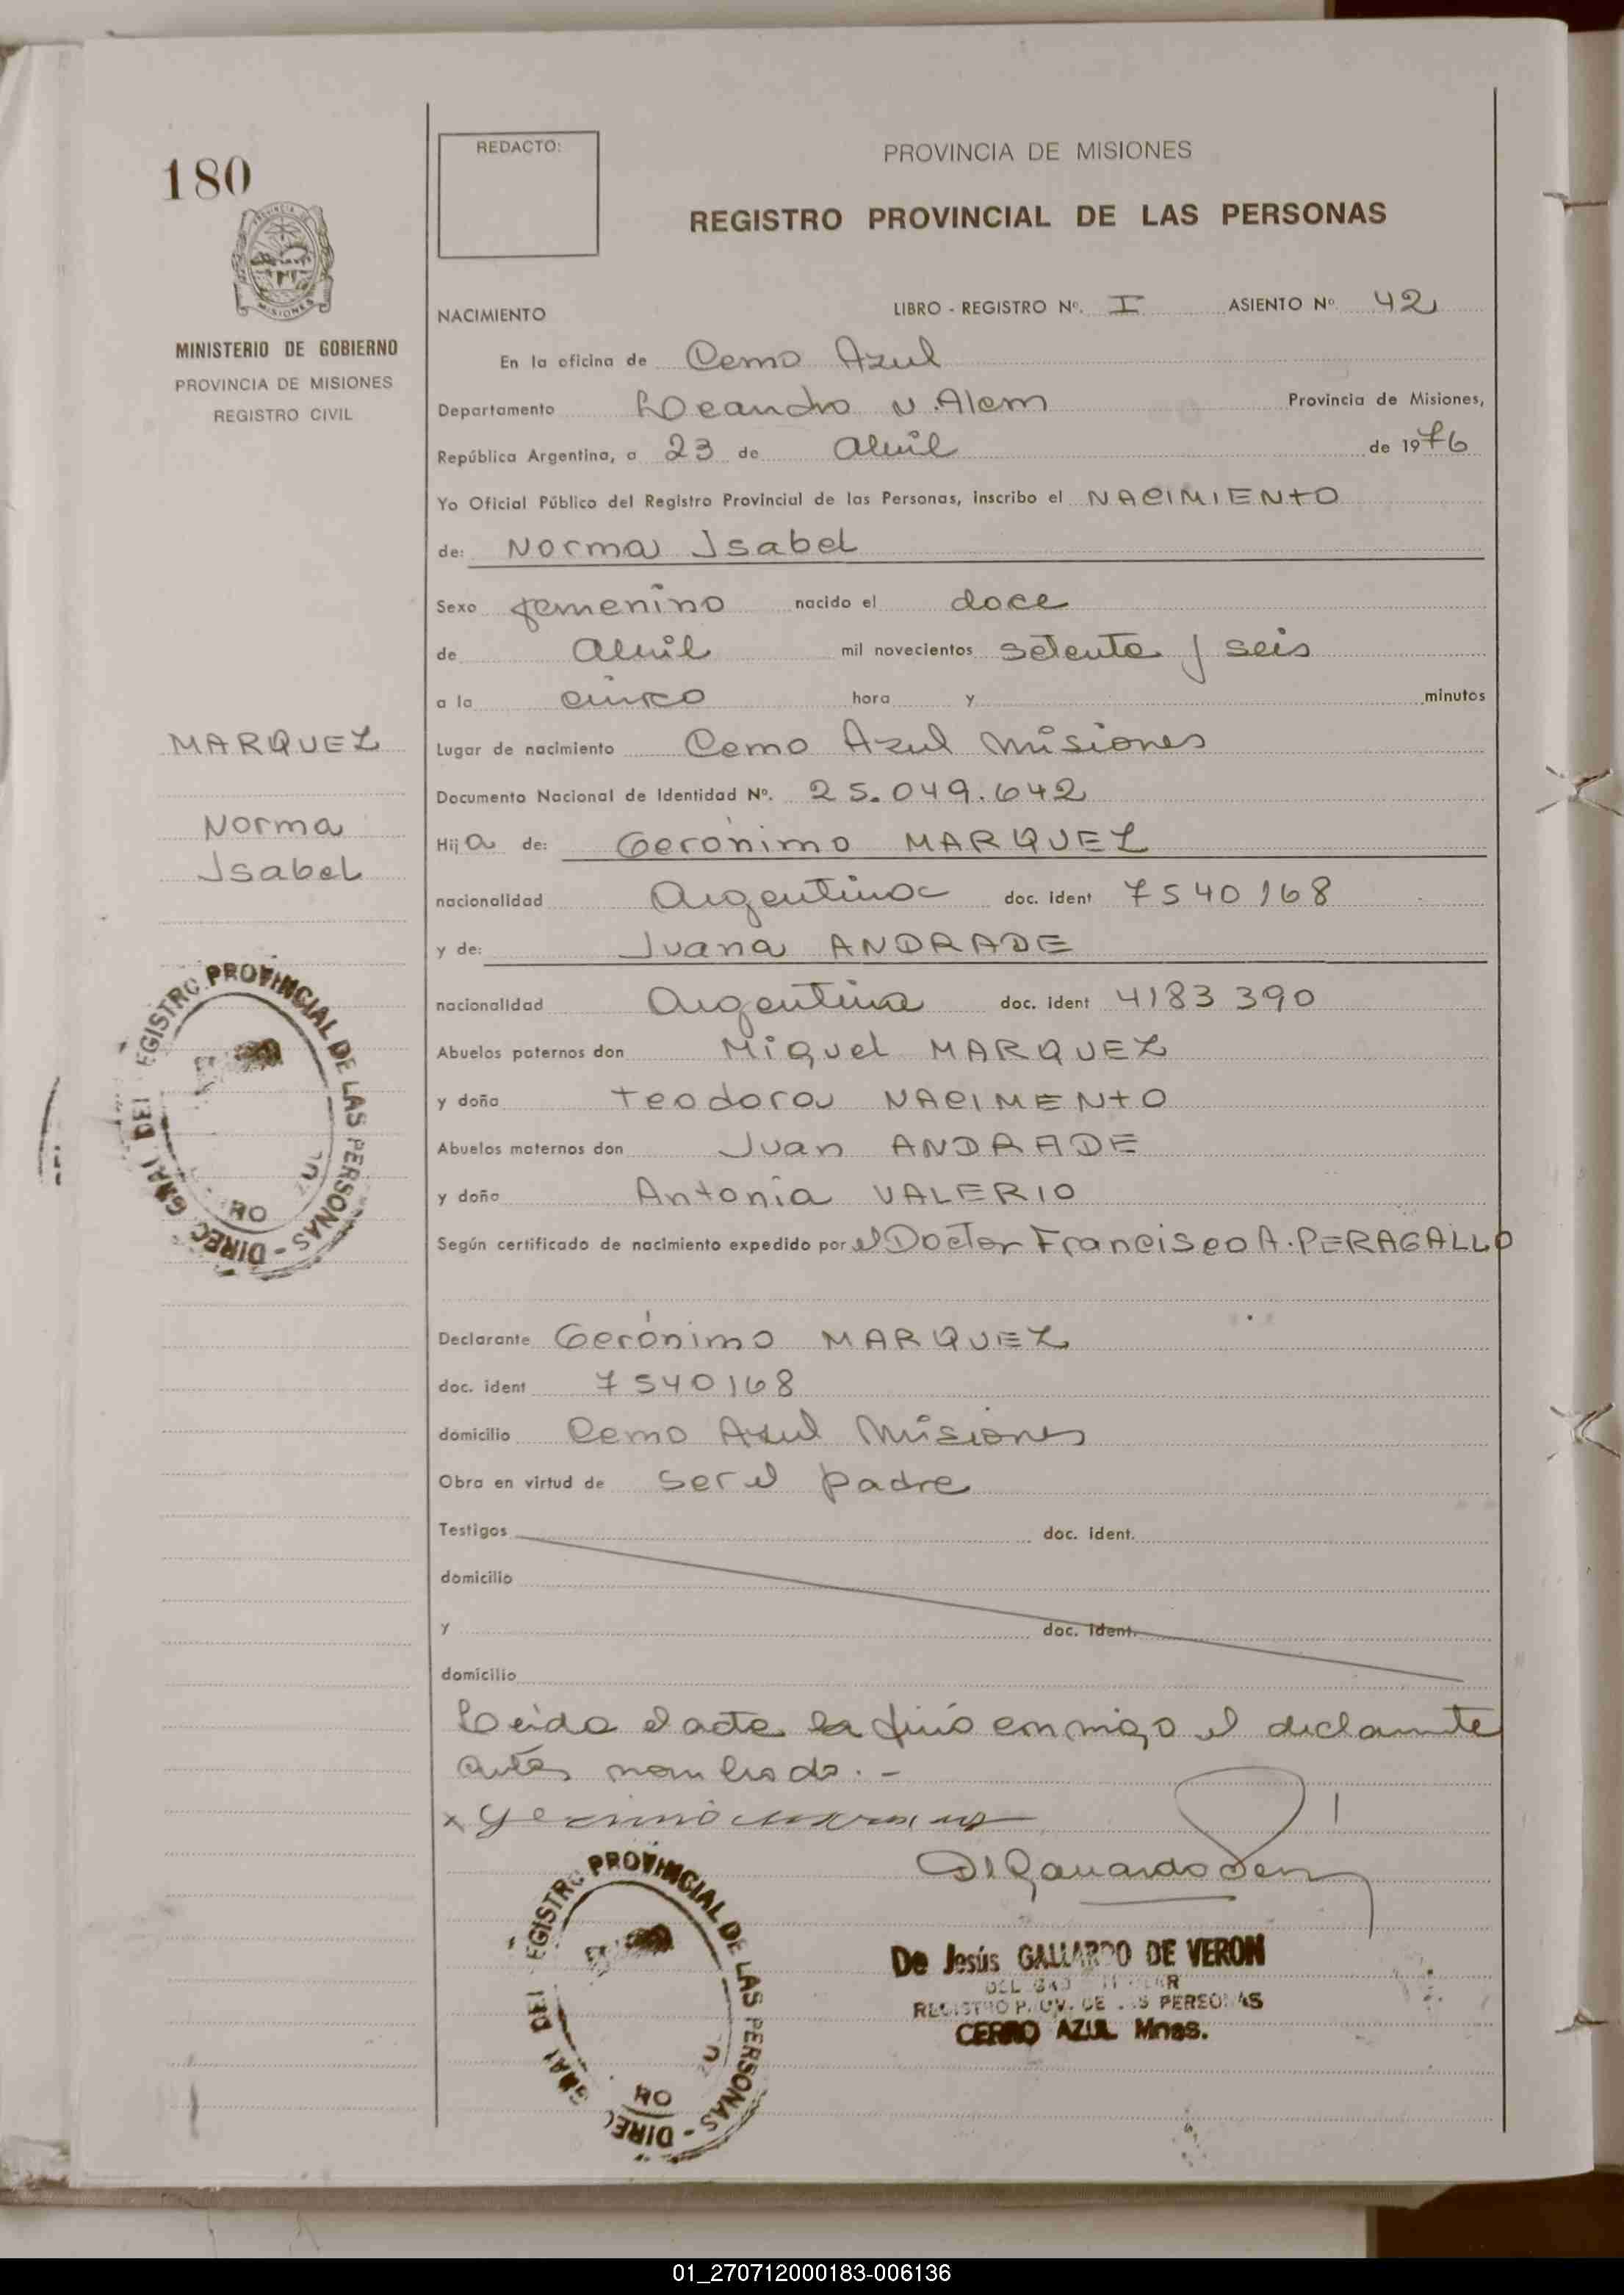 180
MISIONES
MINISTERIO DE GOBIERNO
PROVINCIA DE MISIONES
REGISTRO CIVIL
MARQUEZ
Norma
Isabel
REGISTRO PROVINCIAL DE LAS PERSONAS - DIREC GRAL DEL
REDACTO:
PROVINCIA DE MISIONES
REGISTRO PROVINCIAL DE LAS PERSONAS
NACIMIENTO LIBRO - REGISTRO Nº. I ASIENTO Nº 42
En la oficina de Cerro Azul
Departamento Leandro N. Alem Provincia de Misiones,
República Argentina, a 23 de Abril de 1976
Yo Oficial Público del Registro Provincial de las Personas, inscribo el NACIMIENTO
de: Norma Isabel
Sexo femenino nacido el doce
de Abril mil novecientos setenta y seis
a la cinco hora y minutos
Lugar de nacimiento Cerro Azul Misiones
Documento Nacional de Identidad Nº. 25.049.642
Hija de: Gerónimo MARQUEZ
nacionalidad Argentina doc. ident 7540168
y de: Juana ANDRADE
nacionalidad Argentina doc. ident 4183390
Abuelos paternos don Miguel MARQUEZ
y doña Teodora NACIMENTO
Abuelos maternos don Juan ANDRADE
y doña Antonia VALERIO
Según certificado de nacimiento expedido por el Doctor Francisco A. PERAGALLO
Declarante Gerónimo MARQUEZ
doc. ident 7540168
domicilio Cerro Azul Misiones
Obra en virtud de ser el padre
Testigos doc. ident.
domicilio
y doc. ident.
domicilio
Leida el acta la firmó conmigo el declarante
antes nombrado. -
REGISTRO PROVINCIAL DE LAS PERSONAS - DIREC GRAL DEL
De Jesús GALLARDO DE VERON
REGISTRO PROV. DE LAS PERSONAS
CERRO AZUL Mnes.
01_270712000183-006136